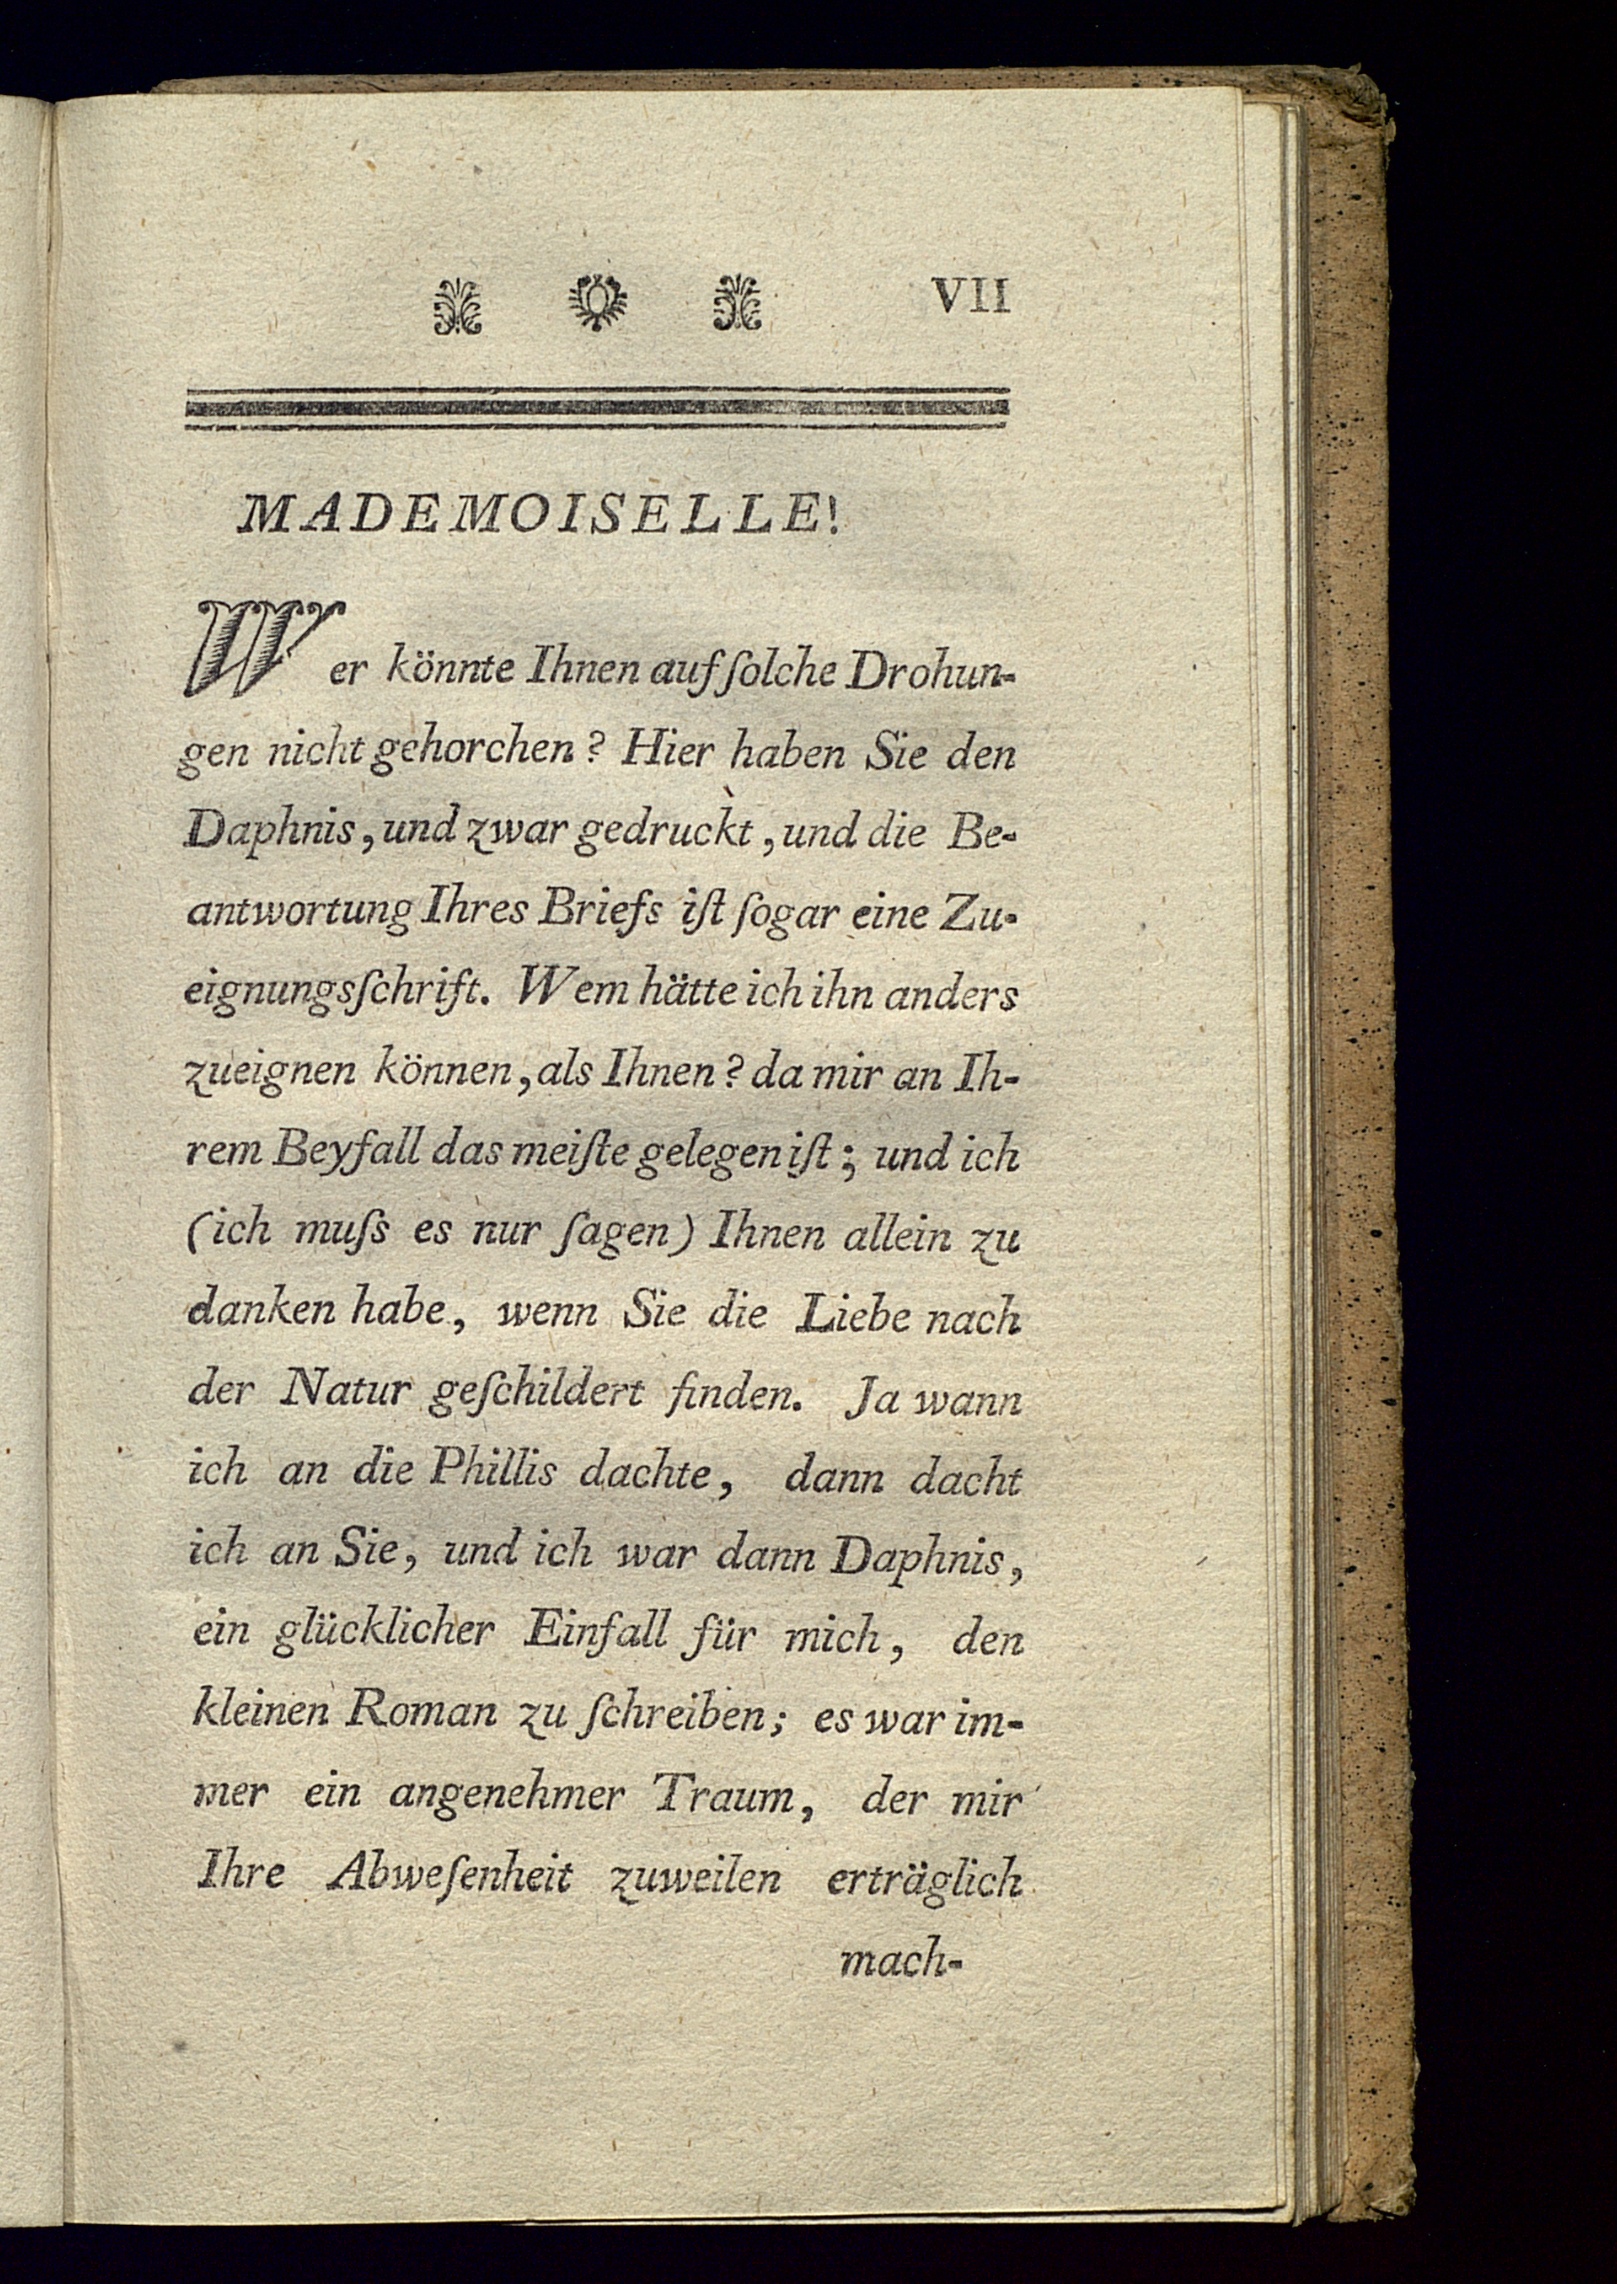 VII
MADEMOISELLE!
Wer könnte Ihnen auf ſolche Drohun-
gen nicht gehorchen? Hier haben Sie den
Daphnis, und zwar gedruckt, und die Be-
antwortung Ihres Briefs iſt ſogar eine Zu-
eignungsſchrift. Wem hätte ich ihn anders
zueignen können, als Ihnen? da mir an Ih-
rem Beyfall das meiſte gelegen iſt; und ich
(ich muſs es nur ſagen) Ihnen allein zu
danken habe, wenn Sie die Liebe nach
der Natur geſchildert finden. Ja wann
ich an die Phillis dachte, dann dacht
ich an Sie, und ich war dann Daphnis,
ein glücklicher Einfall für mich, den
kleinen Roman zu ſchreiben; es war im-
mer ein angenehmer Traum, der mir
Ihre Abweſenheit zuweilen erträglich
mach-